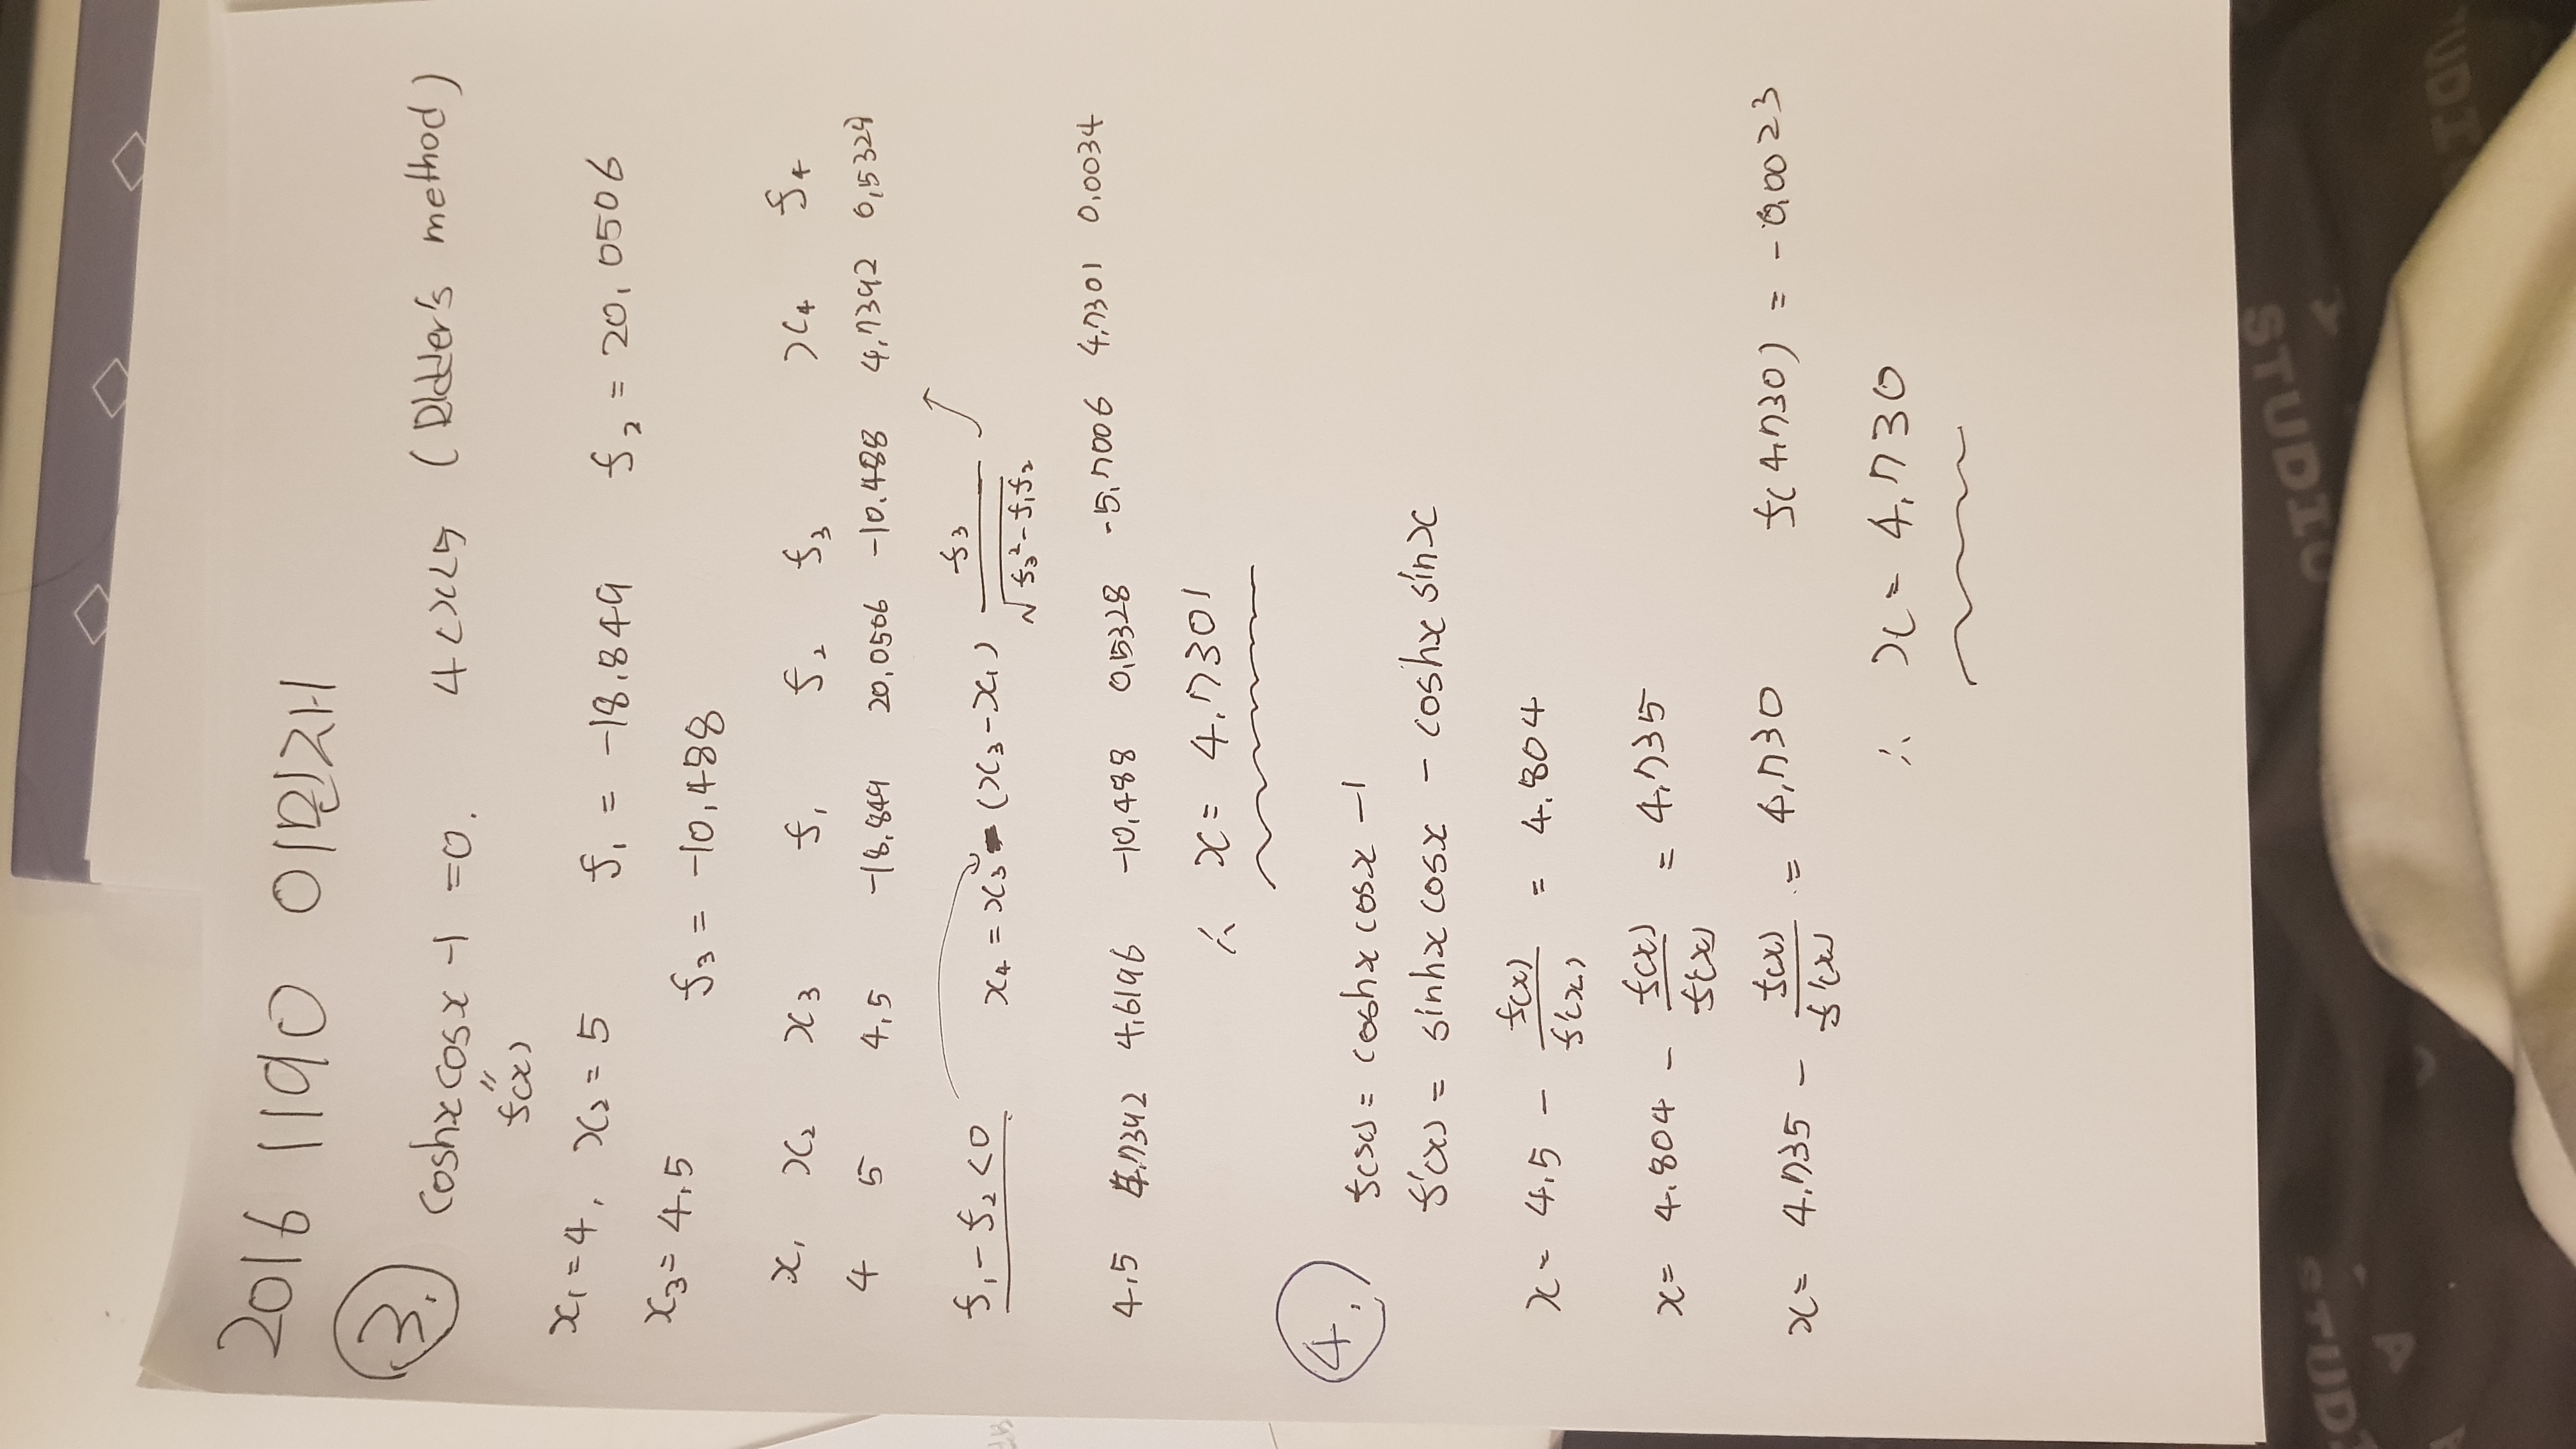 2016 1190 이민재
3. coshx cosx -1 = 0. 4<x<5 (Ridder's method)
"
f(x)
x₁ = 4, x₂ = 5 f₁ = -18.849 f₂ = 20.0506
x₃ = 4.5 f₃ = -10.488
x₁ x₂ x₃ f₁ f₂ f₃ x₄ f₄
4 5 4.5 -18.849 20.0506 -10.488 4.7392 0.5328
f₁ - f₂ < 0 x₄ = x₃ - (x₃ - x₁) f₃ / √(f₃² - f₁f₂)
4.5 4.7392 4.6196 -10.488 0.5328 -5.7006 4.7301 0.0034
∴ x = 4.7301
4. f(x) = coshx cosx - 1
f'(x) = sinhx cosx - coshx sinx
x = 4.5 - f(x)/f'(x) = 4.804
x = 4.804 - f(x)/f'(x) = 4.735
x = 4.735 - f(x)/f'(x) = 4.730 f(4.730) = -0.0023
∴ x = 4.730
STUDIO